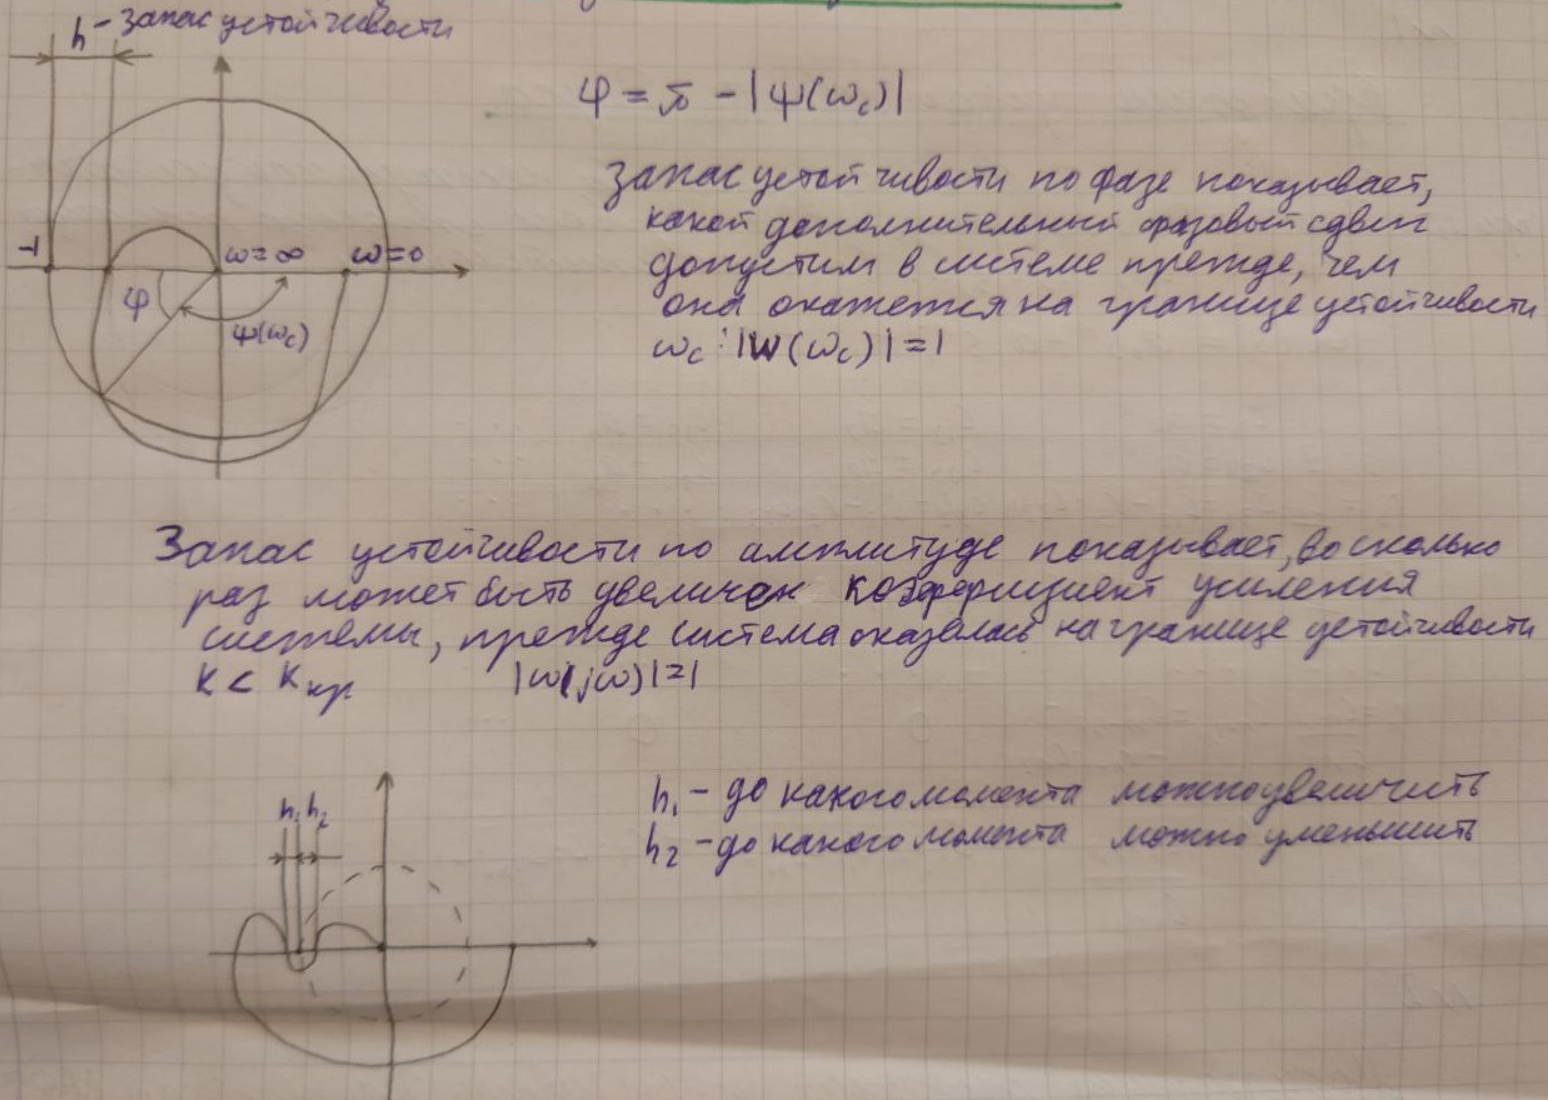 h - запас устойчивости
φ = π - |ψ(ωc)|
Запас устойчивости по фазе показывает,
какой дополнительный фазовый сдвиг
допустим в системе прежде, чем
она окажется на границе устойчивости
ωc : |W(ωc)| = 1
-1
ω=∞
ω=0
φ
ψ(ωc)
Запас устойчивости по амплитуде показывает, во сколько
раз может быть увеличен коэффициент усиления
системы, прежде система оказалась на границе устойчивости
K < Kкр |ω(jω)|=1
h1 h2
h1 - до какого момента можно увеличить
h2 - до какого момента можно уменьшить